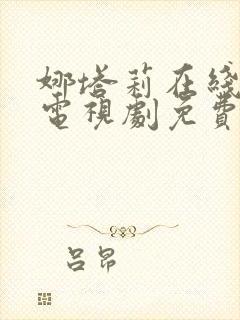 娜塔莉在线
電視劇免費
吕昂